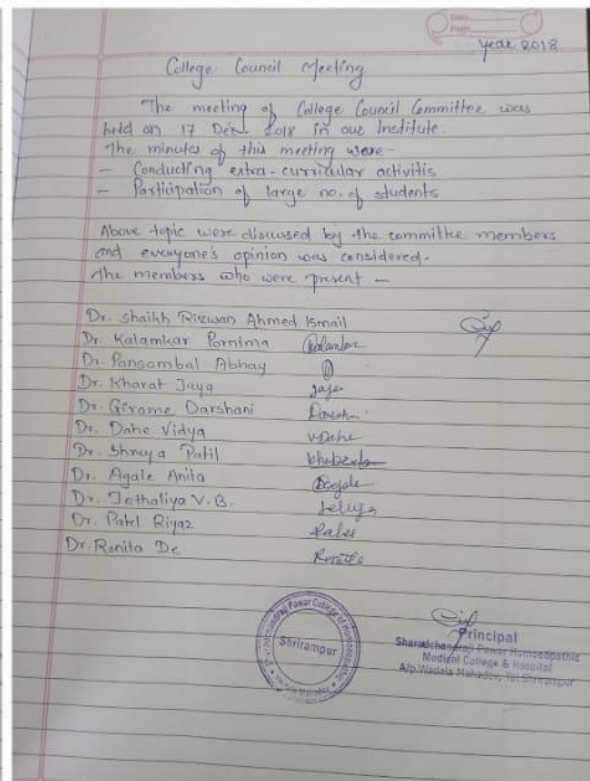 Date
Page
Year 2018
College Council Meeting
The meeting of College Council Committee was
held on 17 Dec. 2018 in our Institute.
The minutes of this meeting were-
- Conducting extra-curricular activitis
- Participation of large no. of students
Above topic were discussed by the committe members
and everyone's opinion was considered.
The members who were present -
Dr. Shaikh Rizwan Ahmed Ismail
Dr. Kalamkar Pornima
Dr. Pansambal Abhay
Dr. Kharat Jaya
Dr. Girame Darshani
Dr. Dahe Vidya VDahe
Dr. Shreya Patil
Dr. Agale Anita
Dr. Jethaliya V.B.
Dr. Patel Riyaz
Dr. Ronita De
Pawar College of Homoeopathic
Shrirampur
Principal
Sharadchandraji Pawar Homoeopathic
Medical College & Hospital
A/p. Wadala Mahadev, Tal. Shrirampur